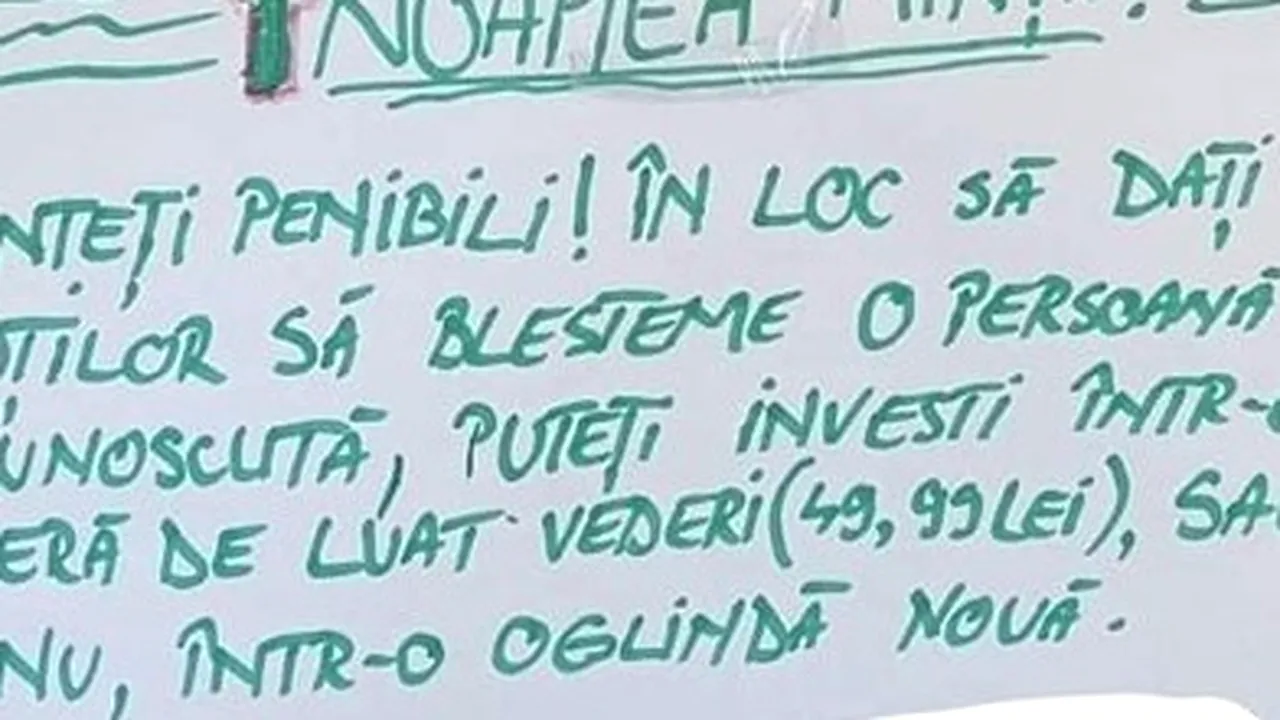 NOAPTEA
NTEȚI PENIBILI! ÎN LOC SĂ DAȚI
TILOR SĂ BLESTEME O PERSOANĂ
UNOSCUTĂ, PUTEȚI INVESTI ÎNTR-O
ERĂ DE LUAT VEDERI(49,99 LEI), SA
NU, ÎNTR-O OGLINDĂ NOUĂ.